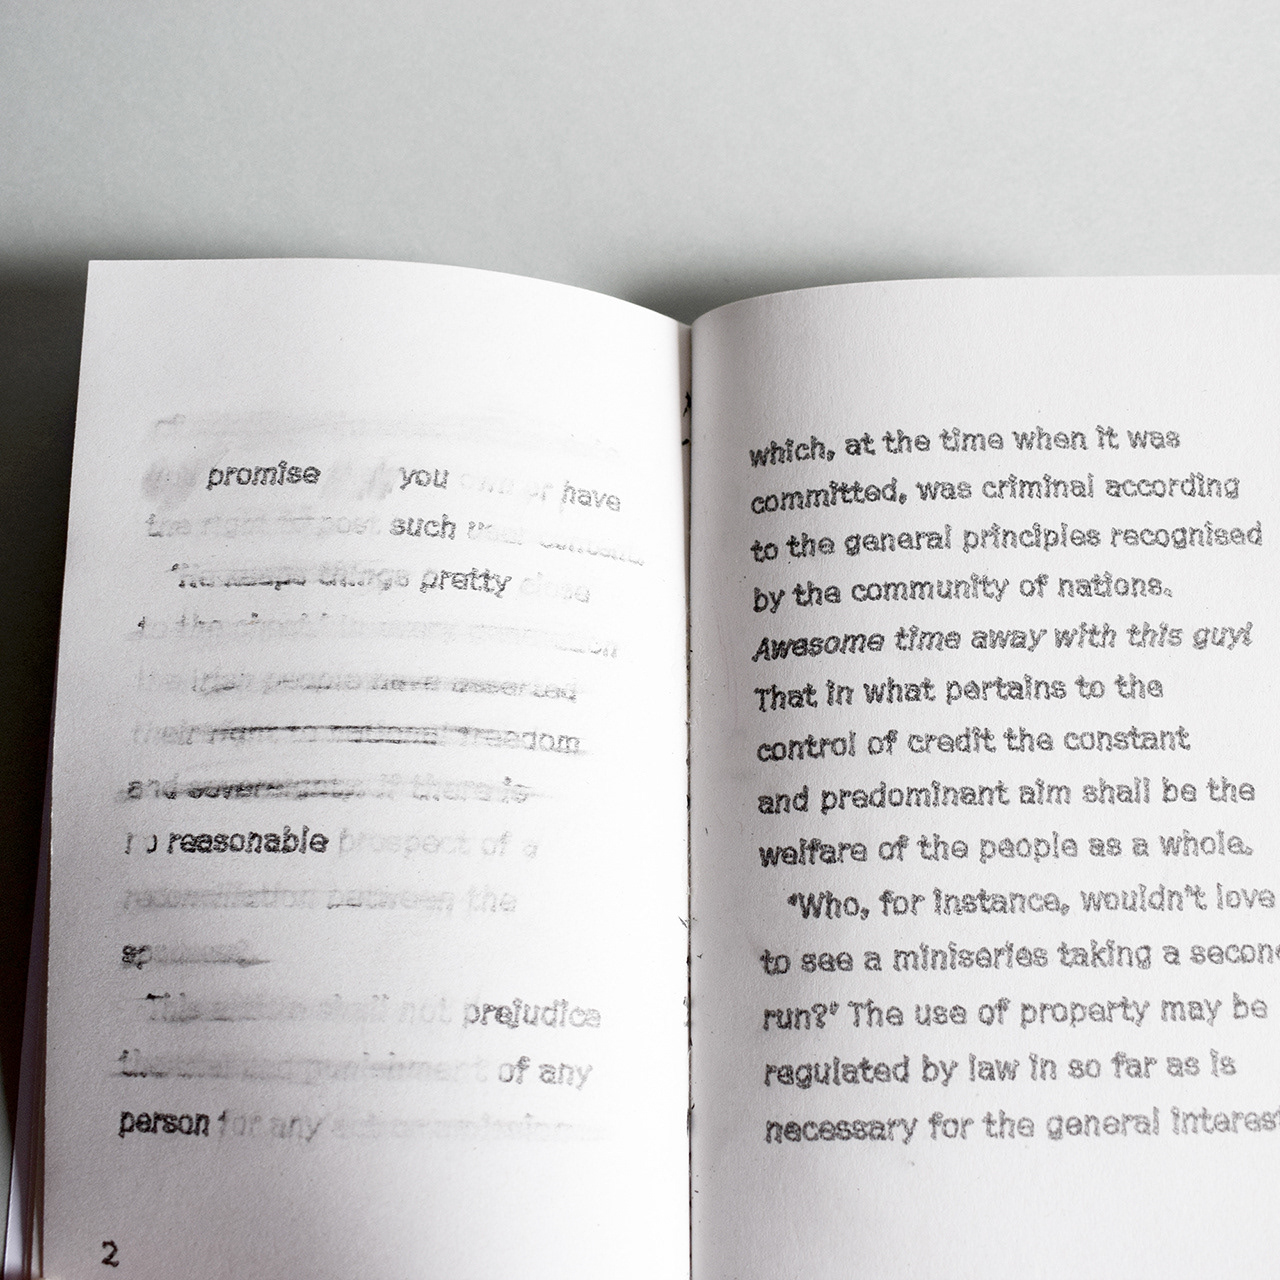 promise you own or have
the right to post such user content.
"He keeps things pretty close
to the
the Irish people have asserted
their right to national freedom
and sovereignty. if there is
no reasonable prospect of a
reconciliation between the
spouses.
This shall not prejudice
the trial and punishment of any
person for any act or omission
2
which, at the time when it was
committed, was criminal according
to the general principles recognised
by the community of nations.
Awesome time away with this guy!
That in what pertains to the
control of credit the constant
and predominant aim shall be the
welfare of the people as a whole.
"Who, for instance, wouldn't love
to see a miniseries taking a second
run?" The use of property may be
regulated by law in so far as is
necessary for the general interest